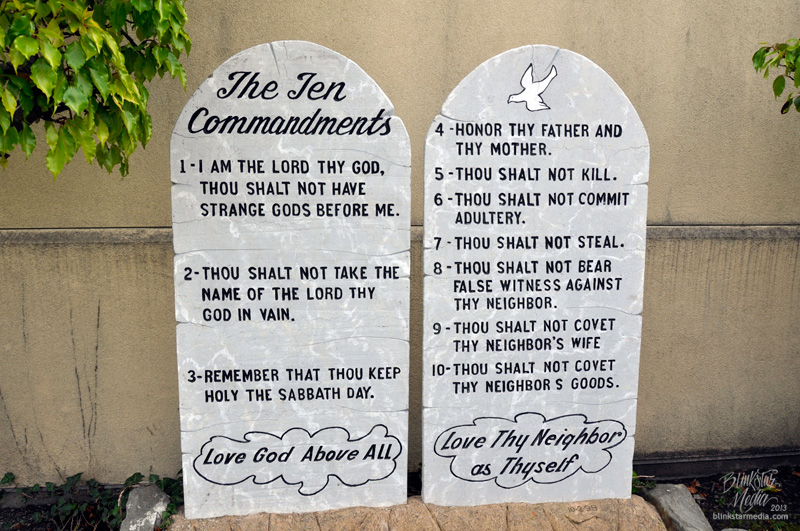 The Ten
Commandments
1-I AM THE LORD THY GOD,
THOU SHALT NOT HAVE
STRANGE GODS BEFORE ME.
2-THOU SHALT NOT TAKE THE
NAME OF THE LORD THY
GOD IN VAIN.
3-REMEMBER THAT THOU KEEP
HOLY THE SABBATH DAY.
Love God Above All
4-HONOR THY FATHER AND
THY MOTHER.
5-THOU SHALT NOT KILL.
6-THOU SHALT NOT COMMIT
ADULTERY.
7-THOU SHALT NOT STEAL.
8-THOU SHALT NOT BEAR
FALSE WITNESS AGAINST
THY NEIGHBOR.
9-THOU SHALT NOT COVET
THY NEIGHBOR'S WIFE
10-THOU SHALT NOT COVET
THY NEIGHBOR'S GOODS.
Love Thy Neighbor
as Thyself
Blinkstar
Media 2013
blinkstarmedia.com